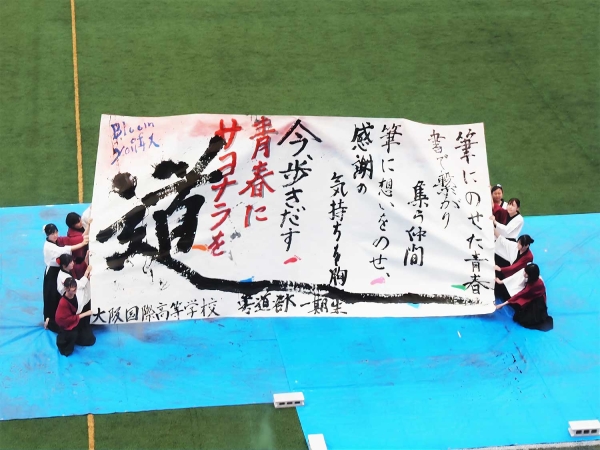 筆にのせた青春
書で繋がり
集う仲間
筆に想いをのせ、
感謝の
気持ちを胸に
今、歩きだす
青春に
サヨナラを
道
大阪国際高等学校 書道部一期生